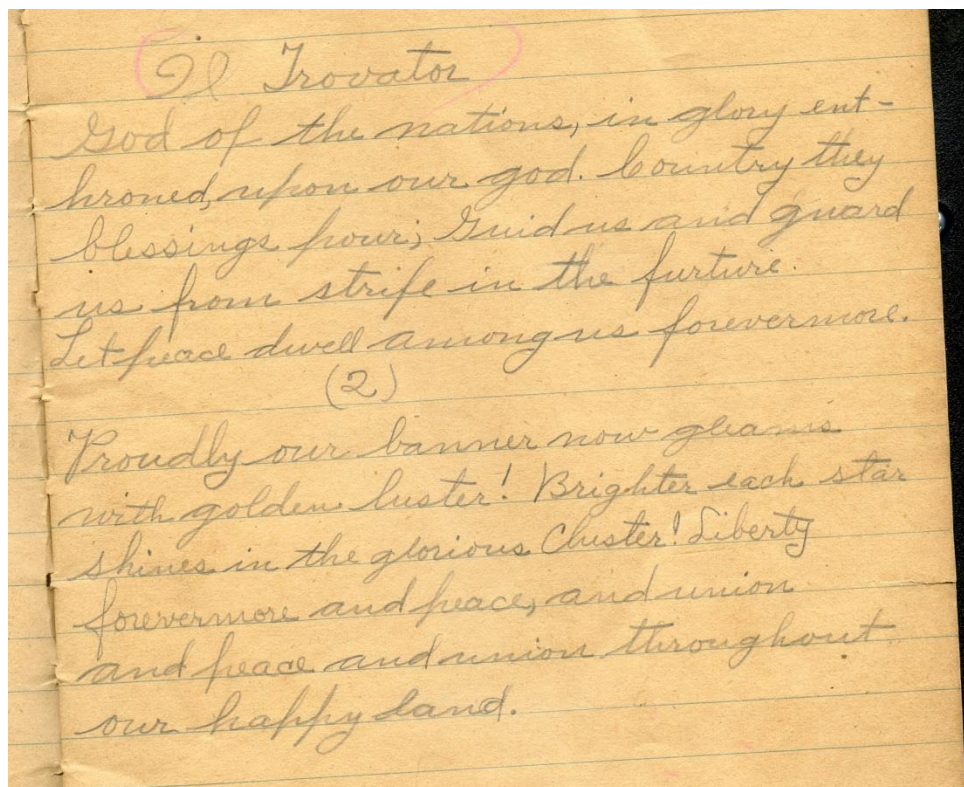 Il Trovator
God of the nations, in glory ent-
hroned, upon our god. Country they
blessings pour; Guid us and guard
us from strife in the furture.
Let peace dwell among us forevermore.
(2)
Proudly our banner now gleams
with golden luster! Brighter each star
shines in the glorious Cluster! Liberty
forevermore and peace, and union
and peace and union throughout
our happy land.